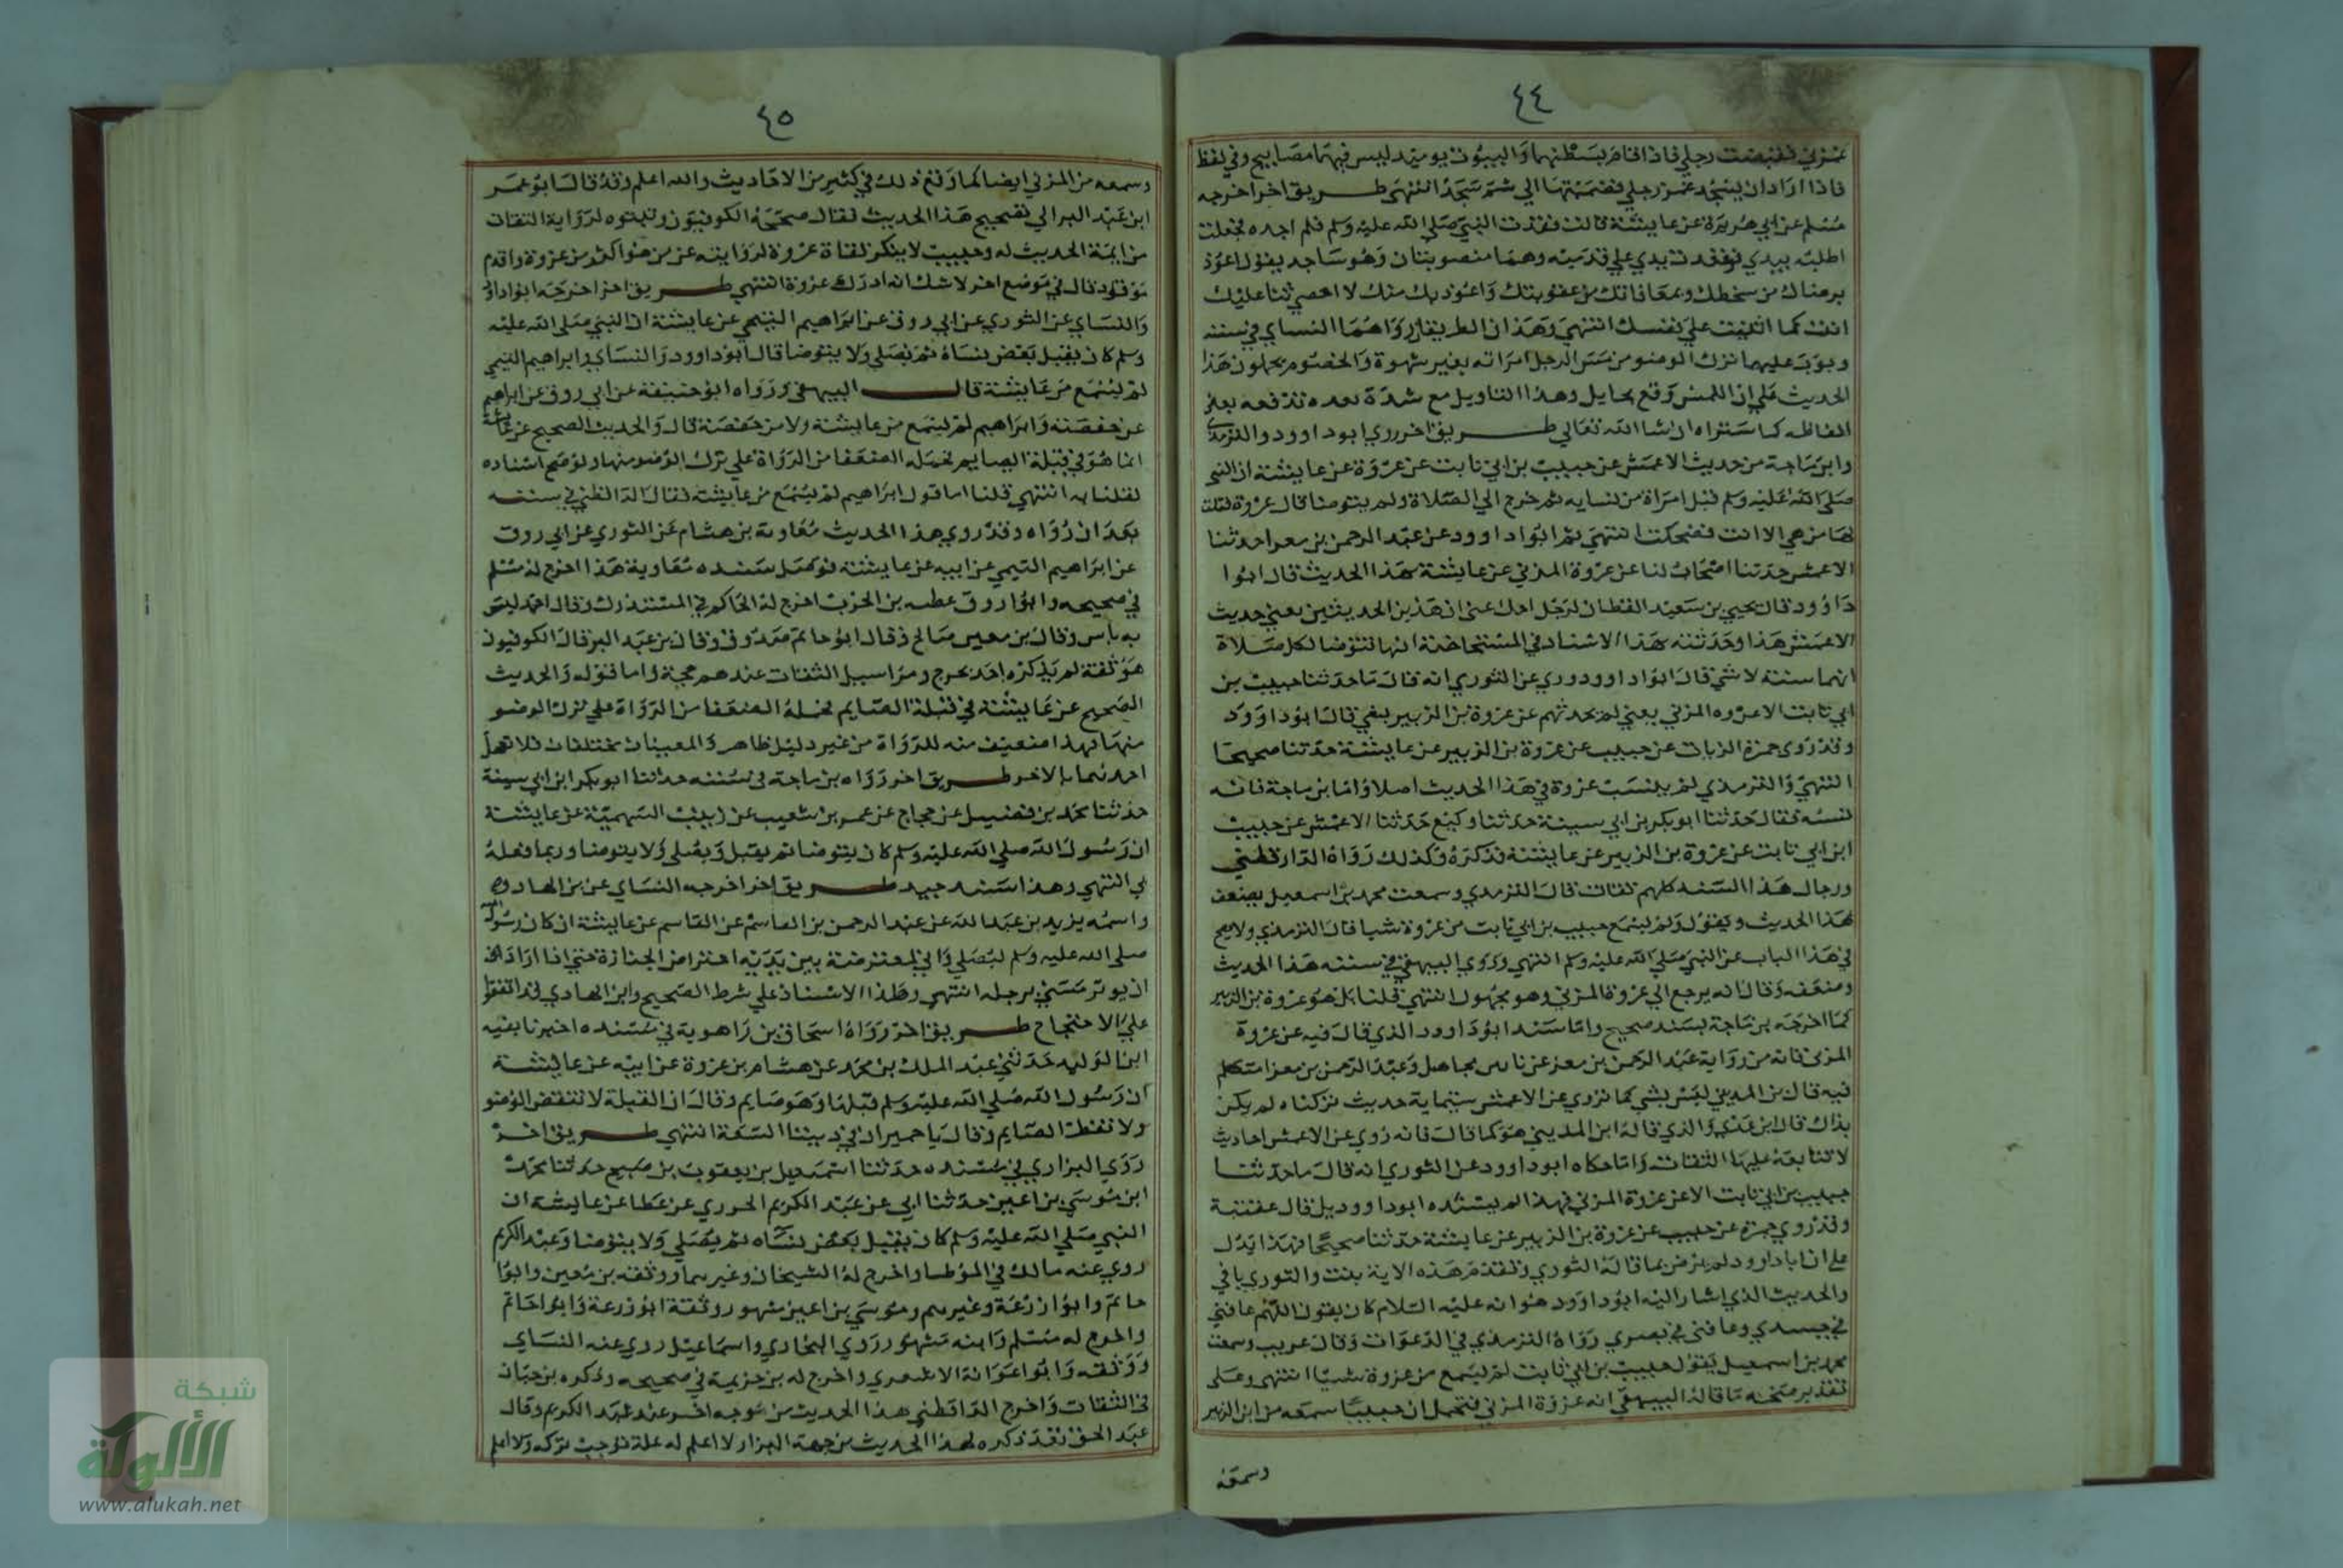 ٤٤
غمزني فقبضت رجلي فاذا قام بسطتهما والبيوت يوميذ ليس فيها مصابيح وفي لفظ
فاذا اراد ان يسجد غمز رجلي فضممتها الي ثم سجد انتهى طريق اخر اخرجه
مسلم عن ابي هريرة عن عايشة قالت فقدت النبي صلى الله عليه وسلم فلم اجده فجعلت
اطلبه بيدي فوقعت يدي علي قدميه وهما منصوبتان وهو ساجد يقول اعوذ
برضاك من سخطك وبمعافاتك من عقوبتك واعوذ بك منك لا احصي ثنا عليك
انت كما اثنيت علي نفسك انتهى وهذان الطريقان رواهما النساي في سننه
وبوب عليهما ترك الوضو من مس الرجل امراته بغير شهوة والخصوم يحملون هذا
الحديث علي ان اللمس وقع بحايل وهذا التاويل مع شدة بعده تدفعه بعض
الفاظه كما ستراه ان شا الله تعالي طريق اخر روي ابو داوود والترمذي
وابن ماجة من حديث الاعمش عن حبيب بن ابي ثابت عن عروة عن عايشة ان النبي
صلى الله عليه وسلم قبل امراة من نسايه ثم خرج الي الصلاة ولم يتوضا قال عروة فقلت
لها من هي الا انت فضحكت انتهى ثم ابو داوود عن عبد الرحمن بن معرا حدثنا
الاعمش حدثنا اصحاب لنا عن عروة المزني عن عايشة بهذا الحديث قال ابوا
داوود قال يحيى بن سعيد القطان لرجل احك عني ان هذين الحديثين يعني حديث
الاعمش هذا وحدثنه بهذا الاسناد في المستحاضة انها تتوضا لكل صلاة
انهما سنة لا شي قال ابوا داوود وروي عن الثوري انه قال ما حدثنا حبيب بن
ابي ثابت الا عروه المزني يعني لم يحدثهم عن عروة بن الزبير بشي قال ابو داوود
وقد روى حمزة الزيات عن حبيب عن عروة بن الزبير عن عايشة حدثنا صحيحا
انتهي والترمذي لم ينسب عروة في هذا الحديث اصلا واما بن ماجة فانه
نسبه فقال حدثنا ابو بكر بن ابي سيبة حدثنا وكيع حدثنا الاعمش عن حبيب
ابن ابي ثابت عن عروة بن الزبير عن عايشة فذكره وكذلك رواه الدارقطني
ورجال هذا السند كلهم ثقات قال الترمذي وسمعت محمد بن اسمعيل يضعف
هذا الحديث ويقول لم يسمع حبيب بن ابي ثابت من عروة شيا قال الترمذي ولا يصح
في هذا الباب عن النبي صلى الله عليه وسلم انتهي وروي البيهقي في سننه هذا الحديث
وضعفه وقال انه يرجع الي عروة المزني وهو مجهول انتهي قلنا بل هو عروة بن الزبير
كما اخرجه بن ماجة بسند صحيح واما سند ابو داوود الذي قال فيه عن عروة
المزني فانه من رواية عبد الرحمن بن معز عن ناس مجاهيل وعبد الرحمن بن معزا متكلم
فيه قال بن المديني ليس بشي كما يروي عن الاعمش ستماية حديث تركناه لم يكن
بذاك قال ابن عدي والذي قاله ابن المديني هو كما قال فانه روي عن الاعمش احاديث
لا تتابعه عليها الثقات واما حكاه ابو داوود عن الثوري انه قال ما حدثنا
حبيب بن ابي ثابت الا عن عروة المزني فهذا لم يسنده ابو داوود بل قال عقيبه
وقد روي حمزة عن حبيب عن عروة بن الزبير عن عايشة حدثنا صحيحا فهذا يدل
علي ان ابا داوود لم يرض بما قاله الثوري ويقدم هذه الاية بنت والثوري يافي
والحديث الذي اشار اليه ابو داوود هو انه عليه السلام كان يقول اللهم عافني
في جسدي وعافني في بصري رواه الترمذي في الدعوات وقال غريب وسمعت
محمد بن اسمعيل يقول حبيب بن ابي ثابت لم يسمع من عروة شيا انتهى وعلى
تقدير صحة ما قاله البيهقي انه عروة المزني فتحمل ان حبيبا سمعه من ابن الزبير
وسمعه
٤٥
وسمعه من المزني ايضا كما وقع ذلك في كثير من الاحاديث والله اعلم وقد قال ابو عمر
ابن عبد البر الي تصحيح هذا الحديث فقال صححه الكوفيون وثبتوه لرواية الثقات
من ايمة الحديث له وحبيب لا ينكر لقاة عروة لروايته عن من هو اكبر من عروة واقدم
موتا وقال في موضع اخر لا شك انه ادرك عروة انتهي طريق اخر اخرجه ابو داود
والنساي عن الثوري عن ابي روق عن ابراهيم التيمي عن عايشة ان النبي صلى الله عليه
وسلم كان يقبل بعض نساه ثم يصلي ولا يتوضا قال ابو داوود والنساي وابراهيم التيمي
لم يسمع من عايشة قال البيهقي ورواه ابو حنيفة عن ابي روق عن ابراهيم
عن حفصة وابراهيم لم يسمع من عايشة ولا من حفصة قال والحديث الصحيح عن عايشة
انما هو في قبلة الصايم فحمله الضعفا من الرواة علي ترك الوضو منها ولو صح اسناده
لقلنا به انتهي قلنا اما قول ابراهيم لم يسمع من عايشة فقال الدارقطني في سننه
بعد ان رواه وقد روي هذا الحديث معاوية بن هشام عن الثوري عن ابي روق
عن ابراهيم التيمي عن ابيه عن عايشة فوصل سنده ومعاوية هذا اخرج له مسلم
في صحيحه وابوا روق عطيه بن الحرث اخرج له الحاكم في المستدرك وقال احمد ليس
به باس وقال بن معين صالح وقال ابو حاتم صدوق وقال بن عبد البر قال الكوفيون
هو ثقة لم يذكره احد بجرح ومراسيل الثقات عندهم حجة واما قوله والحديث
الصحيح عن عايشة في قبلة الصايم فحمله الضعفا من الرواة علي ترك الوضو
منها فهذا تضعيف منه للرواة من غير دليل ظاهر والمعنيان مختلفان فلا تعلل
احدهما بالاخر طريق اخر رواه بن ماجة في سننه حدثنا ابو بكر ابن ابي سيبة
حدثنا محمد بن فضيل عن حجاج عن عمر بن شعيب عن زينب السهمية عن عايشة
ان رسول الله صلى الله عليه وسلم كان يتوضا ثم يقبل ويصلى ولا يتوضا وربما فعله
بي انتهي وهذا سند جيد طريق اخر اخرجه النساي عن بن الهاد
واسمه يزيد بن عبد الله عن عبد الرحمن بن القاسم عن القاسم عن عايشة ان كان رسول الله
صلى الله عليه وسلم ليصلي واني لمعترضة بين يديه اعتراض الجنازة حتي اذا اراد
ان يوتر مسني برجله انتهي وهذا الاسناد علي شرط الصحيح وابن الهادي قد اتفقوا
علي الاحتجاج طريق اخر رواه اسحاق بن راهوية في مسنده اخبرنا بقيه
ابن الوليد حدثني عبد الملك بن محمد عن هشام بن عروة عن ابيه عن عايشة
ان رسول الله صلي الله عليه وسلم قبلها وهو صايم وقال ان القبلة لا تنقض الوضو
ولا تفطر الصايم وقال يا حميرا ان في ديننا السعة انتهي طريق اخر
روي البزار في مسنده حدثنا اسمعيل بن يعقوب بن صبيح حدثنا محمد
ابن موسي بن اعين حدثنا ابي عن عبد الكريم الجزري عن عطا عن عايشة ان
النبي صلى الله عليه وسلم كان يقبل بعض نساه ثم يصلي ولا يتوضا وعبد الكريم
روي عنه مالك في الموطا واخرج له الشيخان وغيرهما ووثقه بن معين وابوا
حاتم وابوا زرعة وغيرهم وموسي بن اعين مشهور وثقه ابو زرعة وابوا حاتم
واخرج له مسلم وابنه مشهور روي له البخاري واسماعيل روي عنه النساي
ووثقه وابوا عوانة الاسفري واخرج له بن خزيمة في صحيحه وذكره بن حبان
في الثقات واخرج الدارقطني هذا الحديث من وجه اخر عن عبد الكريم وقال
عبد الحق بعد ذكره لهذا الحديث من جهة البزار لا اعلم له علة توجب تركه ولا اعلم
شبكة
الألوكة
www.alukah.net